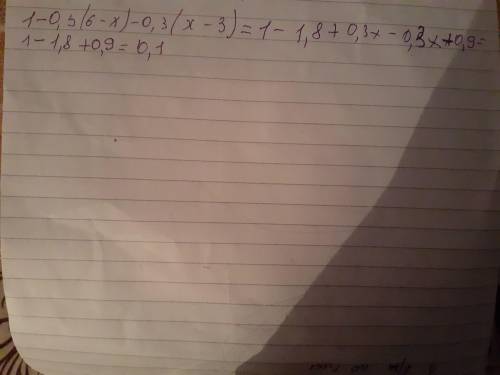 1-0,3(6-x)-0,3(x-3)=1-1,8+0,3x-0,3x+0,9=
1-1,8+0,9=0,1